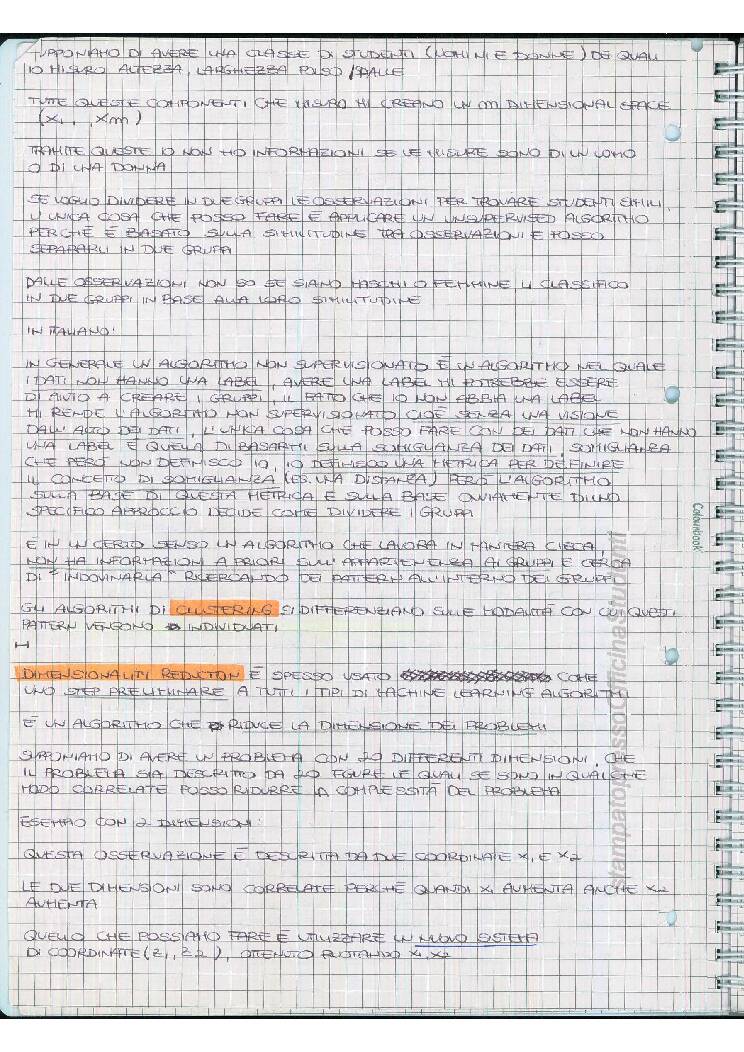 SUPPONIAMO DI AVERE UNA CLASSE DI STUDENTI (UOMINI E DONNE) DEI QUALI
IO MISURO ALTEZZA, LARGHEZZA POLSO / SPALLE
TUTTE QUESTE COMPONENTI CHE MISURO MI CREANO UN M DIMENSIONAL SPACE
(X1, , XM)
TRAMITE QUESTE IO NON HO INFORMAZIONI SE LE MISURE SONO DI UN UOMO
O DI UNA DONNA
SE VOGLIO DIVIDERE IN DUE GRUPPI LE OSSERVAZIONI PER TROVARE STUDENTI SIMILI,
L'UNICA COSA CHE POSSO FARE È APPLICARE UN UNSUPERVISED ALGORITMO
PERCHÉ È BASATO SULLA SIMILITUDINE TRA OSSERVAZIONI E POSSO
SEPARARLI IN DUE GRUPPI
DALLE OSSERVAZIONI NON SO SE SIANO MASCHI O FEMMINE, LI CLASSIFICO
IN DUE GRUPPI IN BASE ALLA LORO SIMILITUDINE
IN ITALIANO:
IN GENERALE UN ALGORITMO NON SUPERVISIONATO È UN ALGORITMO NEL QUALE
I DATI NON HANNO UNA LABEL, AVERE UNA LABEL MI POTREBBE ESSERE
DI AIUTO A CREARE I GRUPPI, IL FATTO CHE IO NON ABBIA UNA LABEL
MI RENDE L'ALGORITMO NON SUPERVISIONATO CIOÈ SENZA UNA VISIONE
DALL'ALTO DEI DATI, L'UNICA COSA CHE POSSO FARE CON DEI DATI CHE NON HANNO
UNA LABEL È QUELLA DI BASARMI SULLA SOMIGLIANZA DEI DATI, SOMIGLIANZA
CHE PERÒ NON DEFINISCO IO, IO DEFINISCO UNA METRICA PER DEFINIRE
IL CONCETTO DI SOMIGLIANZA (ES. UNA DISTANZA) PERÒ L'ALGORITMO
SULLA BASE DI QUESTA METRICA E SULLA BASE OVVIAMENTE DI UNO
SPECIFICO APPROCCIO DECIDE COME DIVIDERE I GRUPPI
È IN UN CERTO SENSO UN ALGORITMO CHE LAVORA IN MANIERA CIECA,
NON HA INFORMAZIONI A PRIORI SULL'APPARTENENZA AI GRUPPI E CERCA
DI "INDOVINARLA" RICERCANDO DEI PATTERN ALL'INTERNO DEI GRUPPI
GLI ALGORITMI DI CLUSTERING SI DIFFERENZIANO SULLE MODALITÀ CON CUI QUESTI
PATTERN VENGONO INDIVIDUATI
DIMENSIONALITI REDUCTON È SPESSO USATO COME
UNO STEP PRELIMINARE A TUTTI I TIPI DI MACHINE LEARNING ALGORITMI
È UN ALGORITMO CHE RIDUCE LA DIMENSIONE DEI PROBLEMI
SUPPONIAMO DI AVERE UN PROBLEMA CON 20 DIFFERENTI DIMENSIONI, CHE
IL PROBLEMA SIA DESCRITTO DA 20 FIGURE LE QUALI SE SONO IN QUALCHE
MODO CORRELATE POSSO RIDURRE LA COMPLESSITÀ DEL PROBLEMA
ESEMPIO CON 2 DIMENSIONI:
QUESTA OSSERVAZIONE È DESCRITTA DA DUE COORDINATE X1 E X2
LE DUE DIMENSIONI SONO CORRELATE PERCHÉ QUANDI X1 AUMENTA ANCHE X2
AUMENTA
QUELLO CHE POSSIAMO FARE È UTILIZZARE UN NUOVO SISTEMA
DI COORDINATE (Z1, Z2), OTTENUTO RUOTANDO X1, X2
Colourbook
stampatopressoOfficinaStudenti